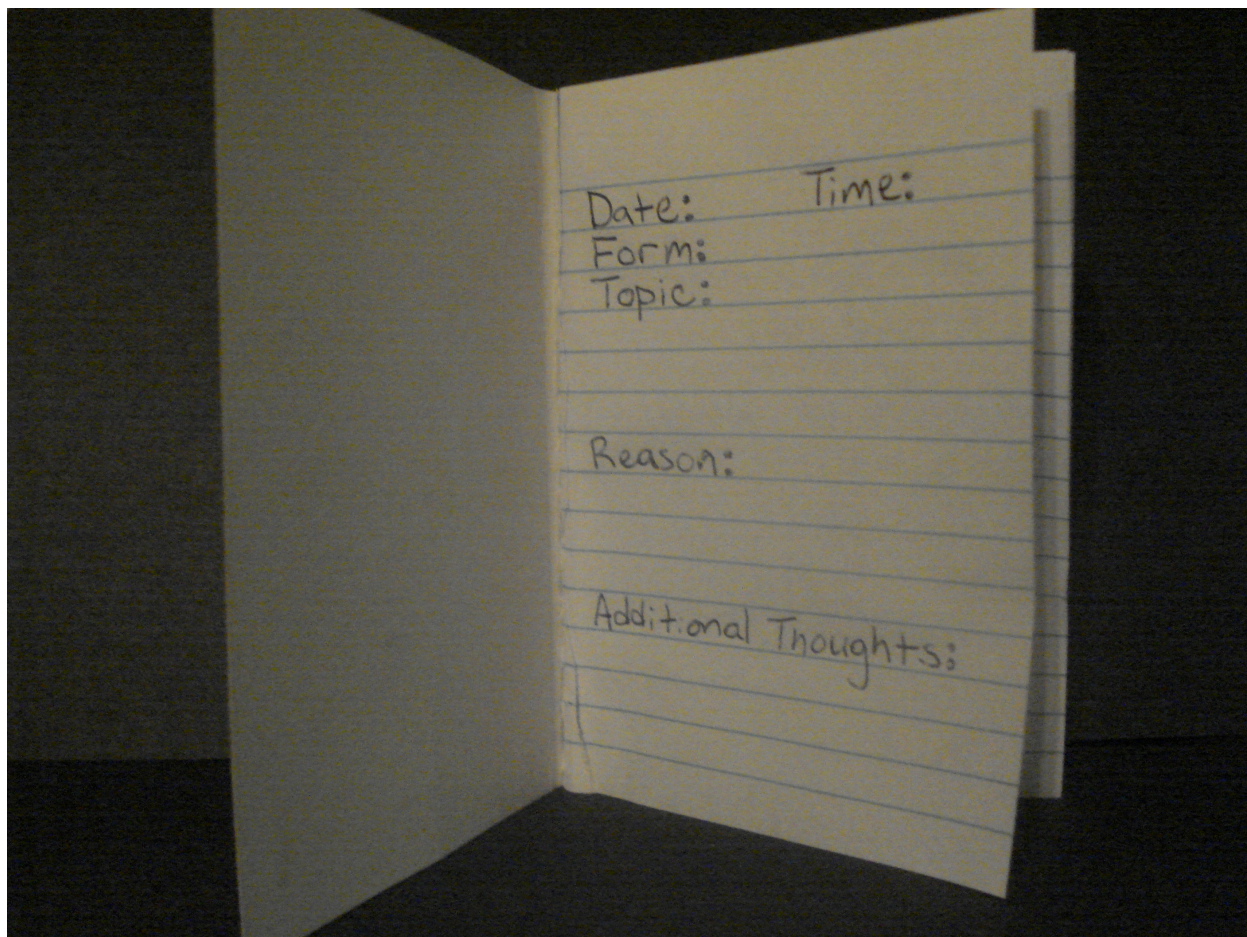 Date: Time:
Form:
Topic:
Reason:
Additional Thoughts: